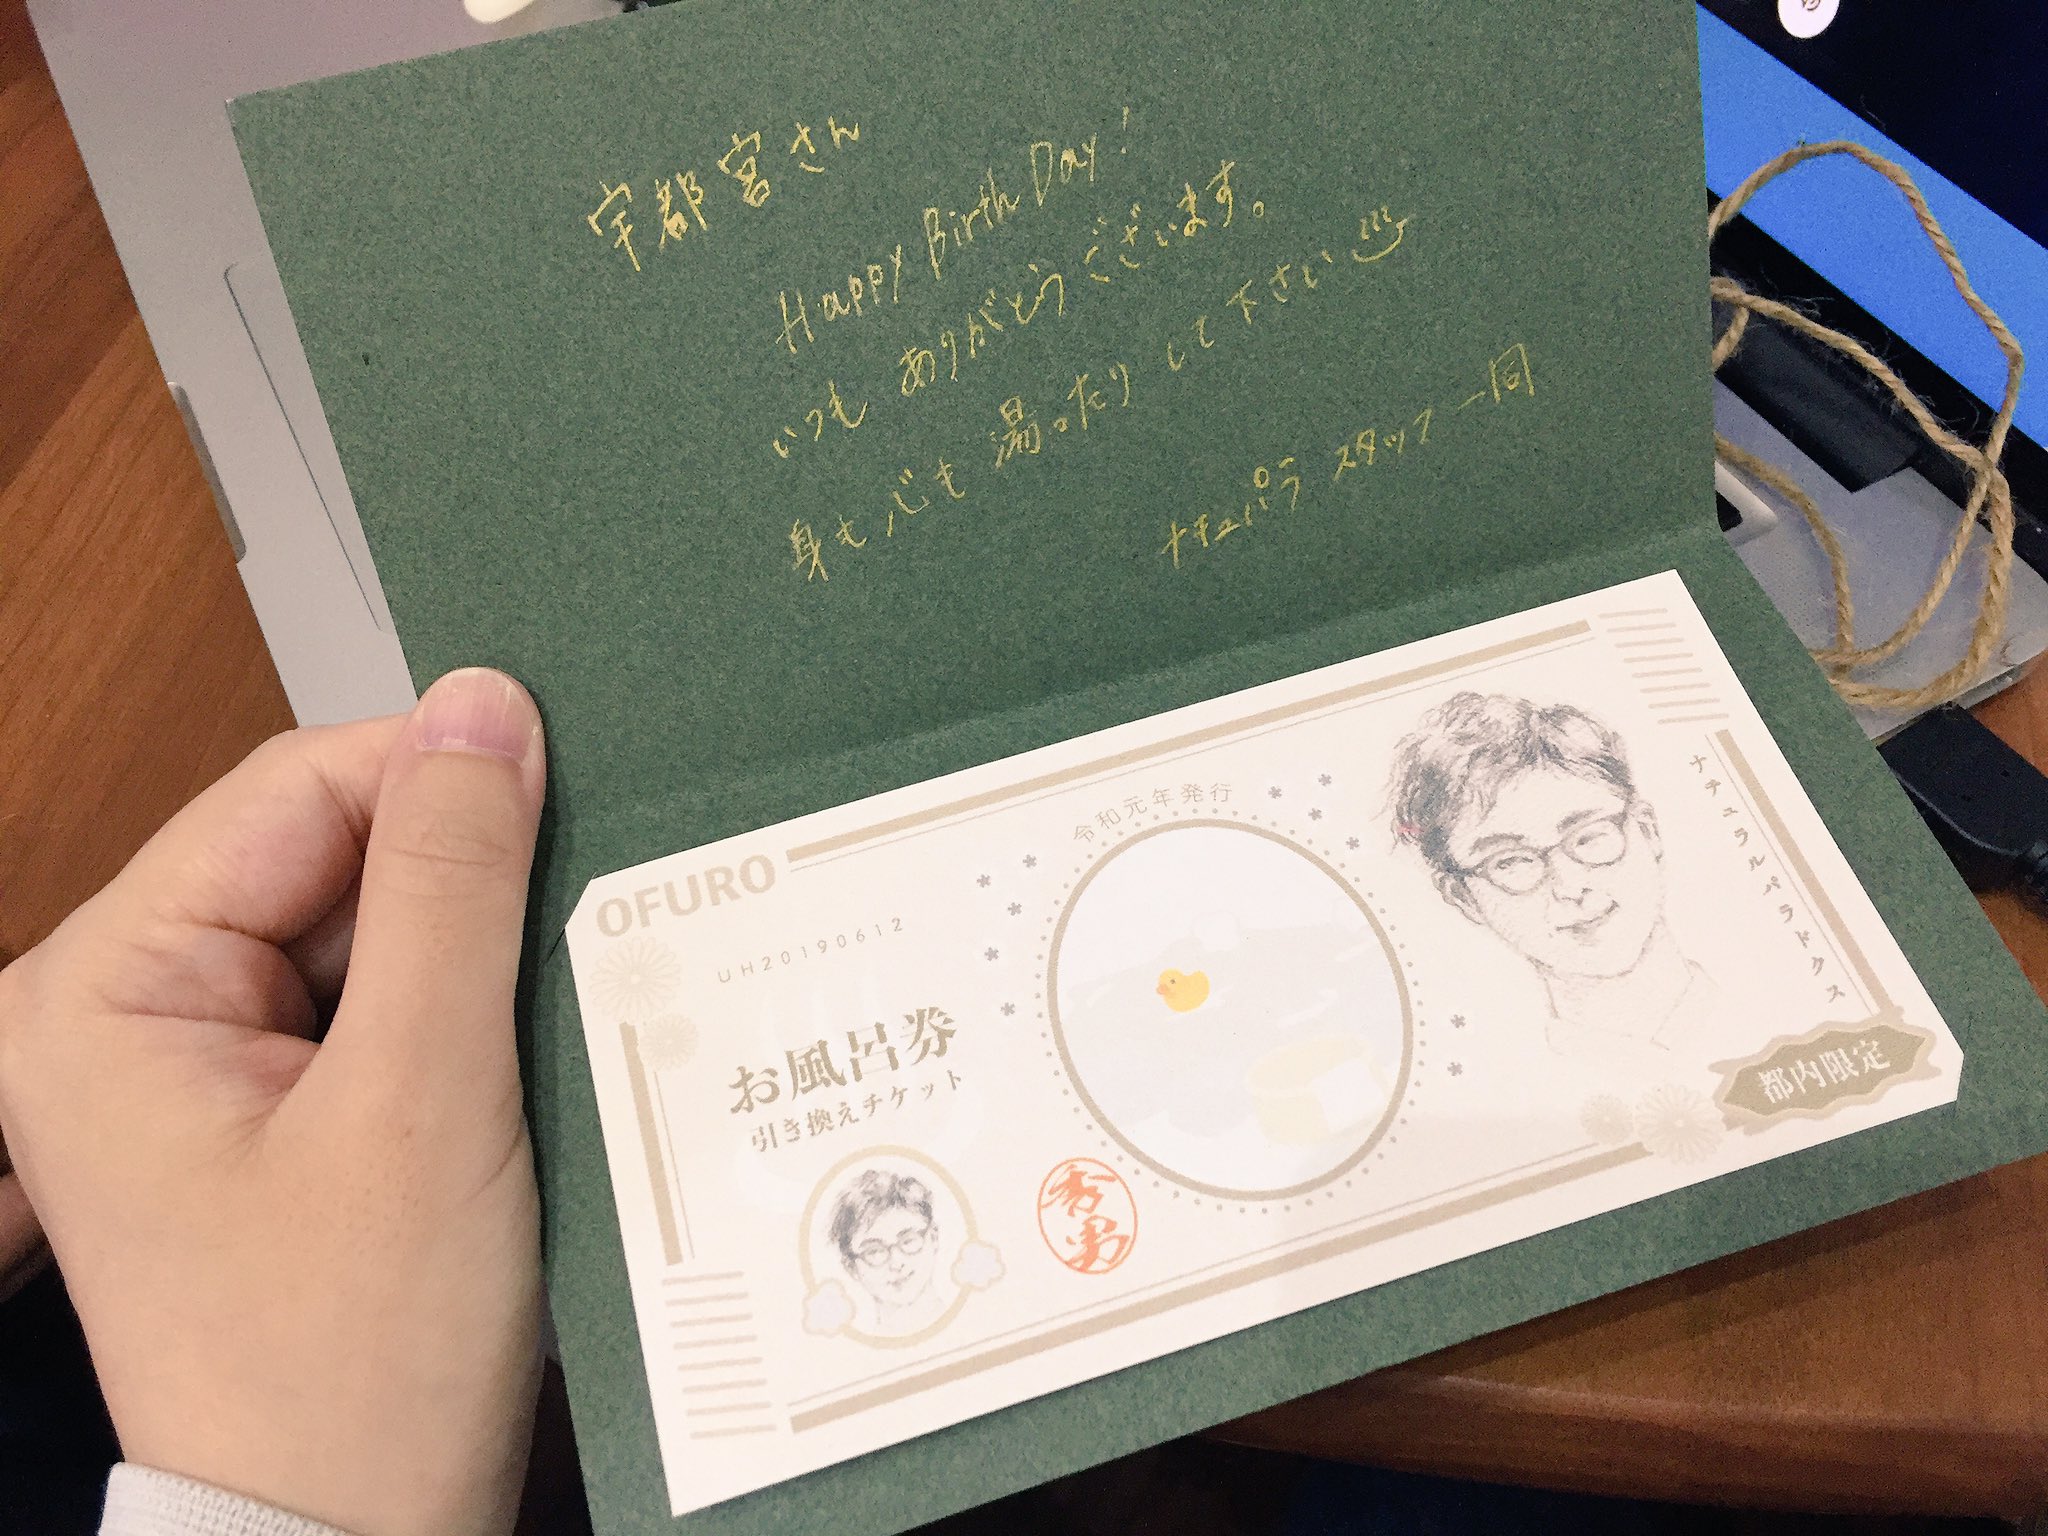 宇都宮さん
Happy Birth Day!
いつも ありがとうございます。
身も心も 湯ったり して下さい
ナチュパラ スタッフ一同
OFURO
UH20190612
令和元年発行
お風呂券
引き換えチケット
秀男
ナチュラルパラドクス
都内限定